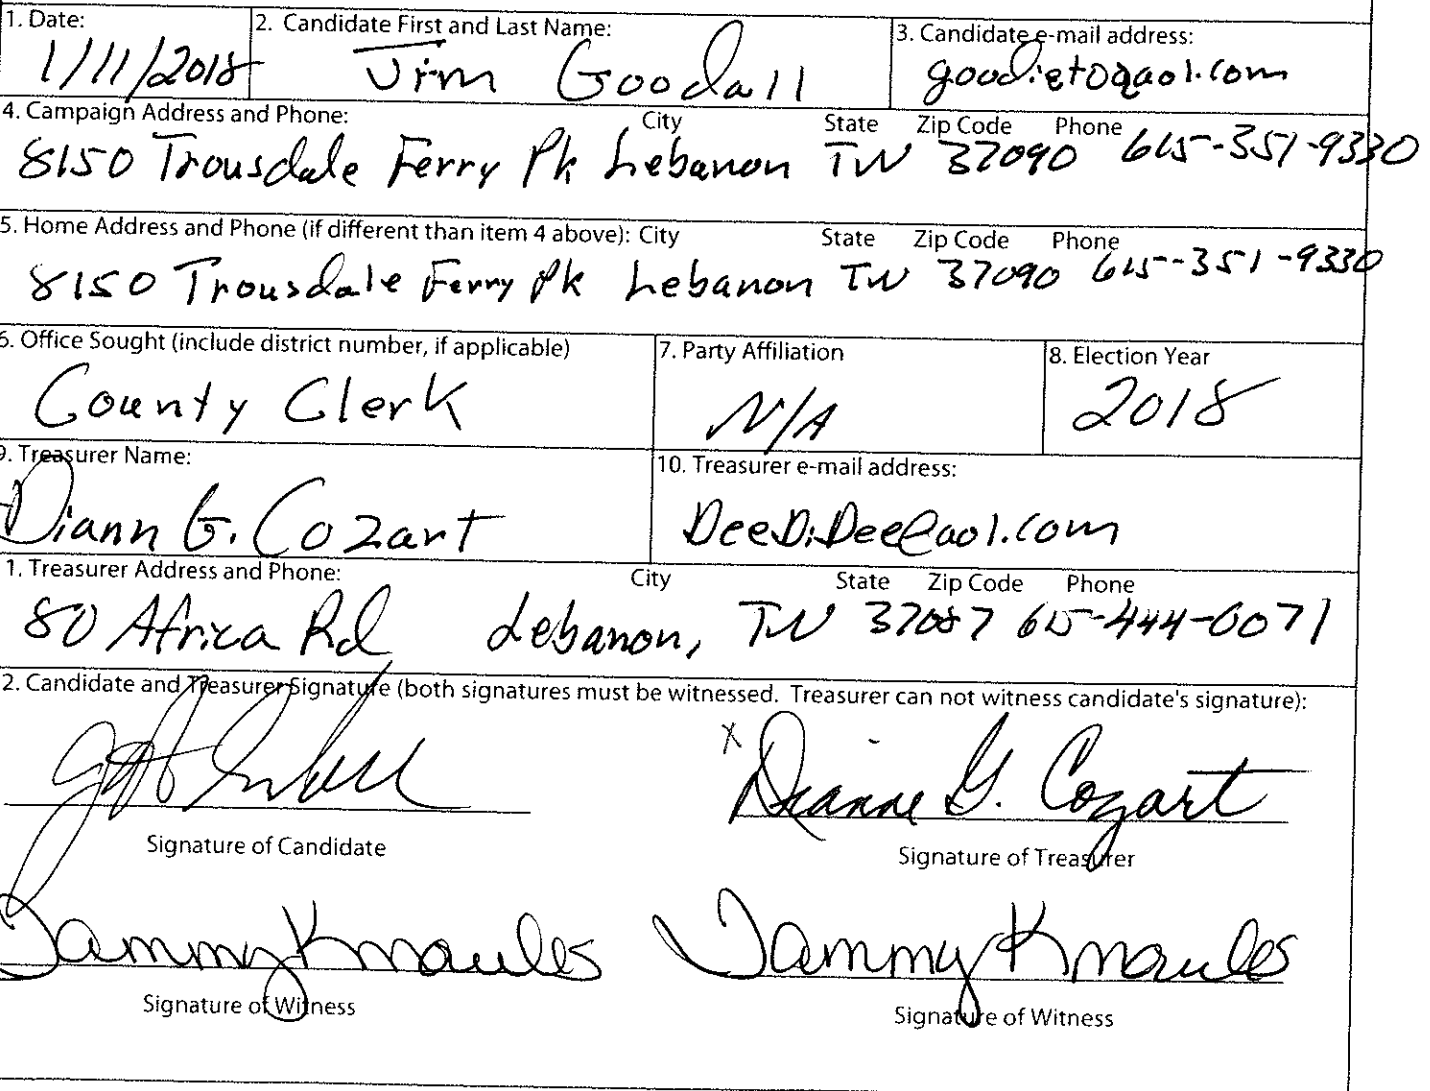 1. Date: 2. Candidate First and Last Name: 3. Candidate e-mail address:
1/11/2018 Jim Goodall goodieto@aol.com
4. Campaign Address and Phone: City State Zip Code Phone
8150 Trousdale Ferry Pk Lebanon TN 37090 615-351-9330
5. Home Address and Phone (if different than item 4 above): City State Zip Code Phone
8150 Trousdale Ferry Pk Lebanon TN 37090 615-351-9330
6. Office Sought (include district number, if applicable) 7. Party Affiliation 8. Election Year
County Clerk N/A 2018
9. Treasurer Name: 10. Treasurer e-mail address:
Diann G. Cozart DeeDiDee@aol.com
1. Treasurer Address and Phone: City State Zip Code Phone
80 Africa Rd Lebanon, TN 37087 615-444-0071
2. Candidate and Treasurer Signature (both signatures must be witnessed. Treasurer can not witness candidate's signature):
X Dianne G. Cozart
Signature of Candidate Signature of Treasurer
Tammy Knowles Tammy Knowles
Signature of Witness Signature of Witness